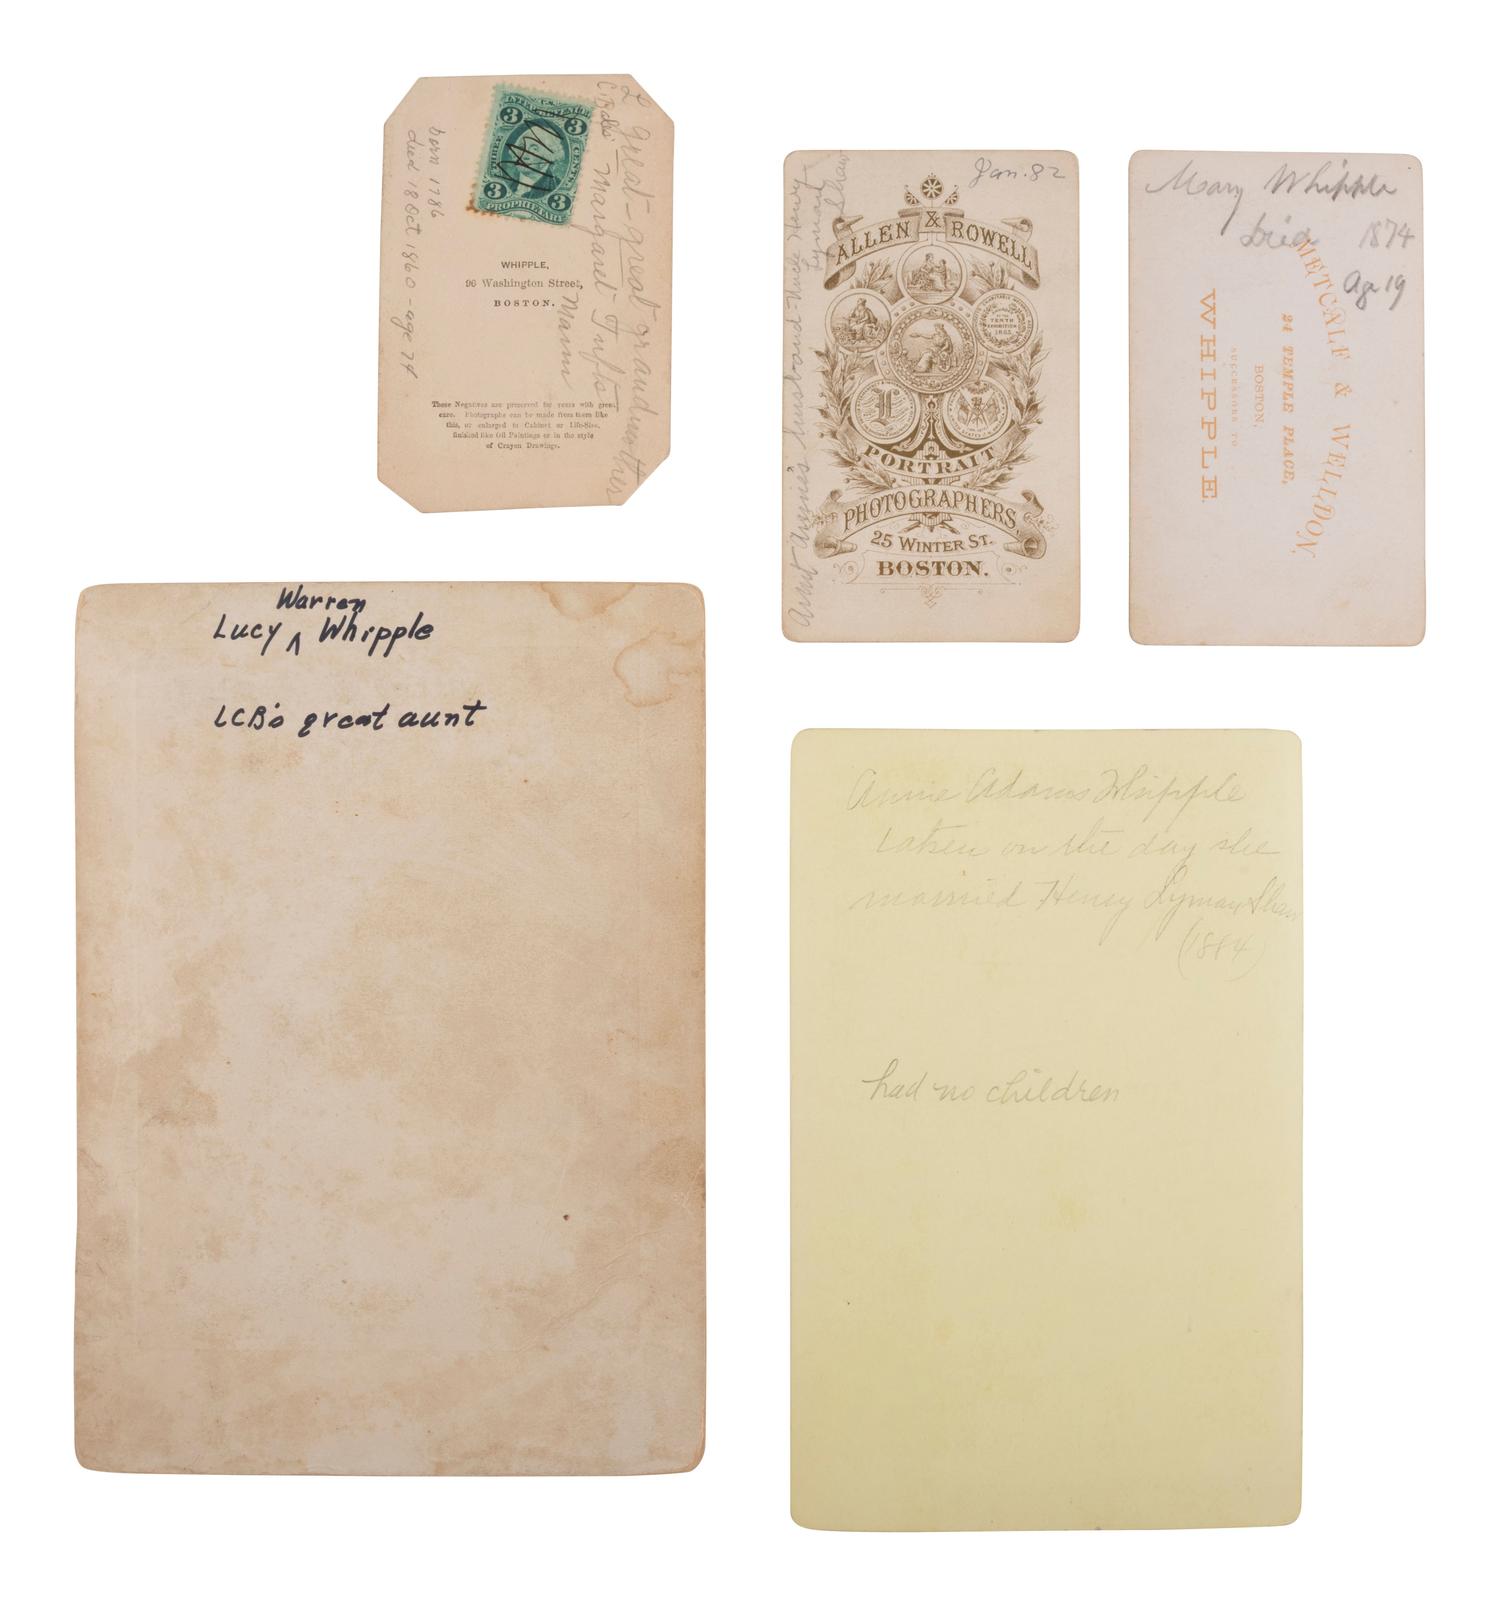 2 great-great grandmother
CB's Margaret Tufts
Mann
born 1786
died 18 Oct 1860 - age 74
U.S.
INTER. REVENUE
3 3
THREE CENTS
3 3
PROPRIETARY
WHIPPLE,
96 Washington Street,
BOSTON.
These Negatives are preserved for years with great
care. Photographs can be made from them like
this, or enlarged to Cabinet or Life-Size,
finished like Oil Paintings or in the style
of Crayon Drawings.
Jan. 82
Aunt Annie's husband - Uncle Henry
Lyman
Shaw
ALLEN & ROWELL
PORTRAIT
PHOTOGRAPHERS,
25 WINTER ST.
BOSTON.
Mary Whipple
Died 1874
Age 19
METCALF & WELLDON,
24 TEMPLE PLACE,
BOSTON,
SUCCESSORS TO
WHIPPLE.
Warren
Lucy ^ Whipple
LCB's great aunt
Annie Adams Whipple
taken on the day she
married Henry Lyman Shaw
(1884)
had no children